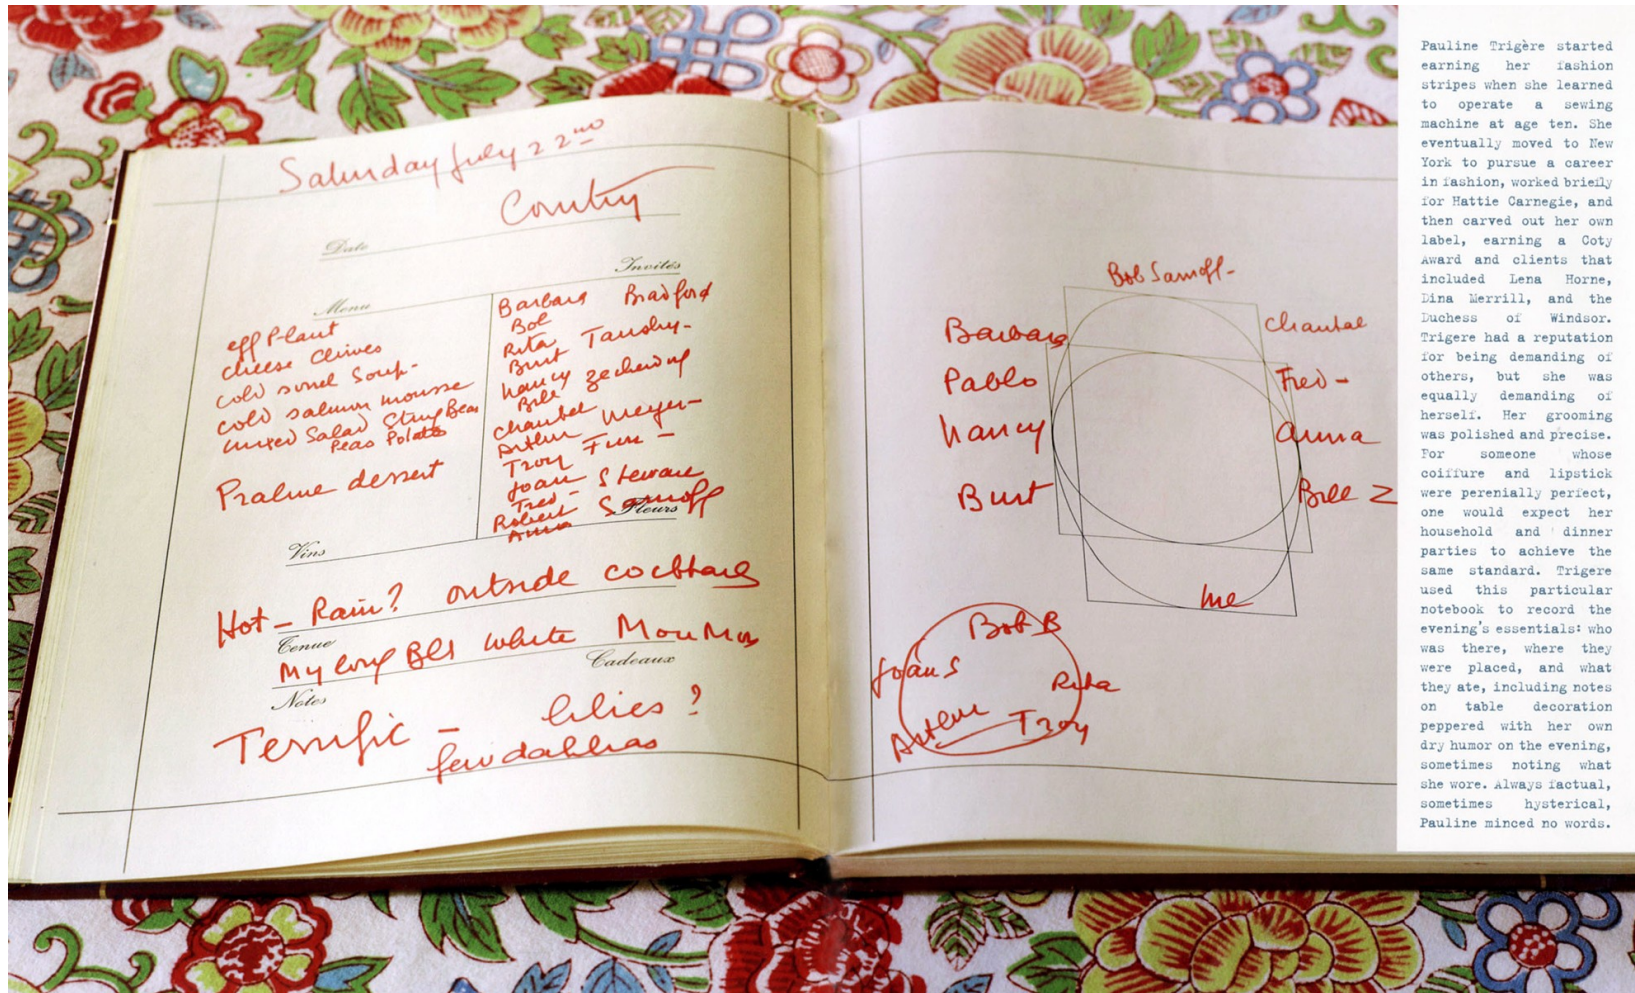 Saturday July 22ND
Country
Date
Invités
Menu
egg Plant
cheese chives
cold sorrel Soup-
cold salmon mousse
mixed Salad String Beas
Peas Potato
Praline dessert
Barbara Bradford
Bob
Rita
Burt Tansky-
Nancy Zeckendorf
Bill
Chantal
Arthur Meyer-
Troy
Joan
Fred - Stewart
Robert Sarnoff
Anna
Fleurs
Vins
Hot - Rain? outside cocktails
Tenue
My long Bla white Mou Mou
Cadeaux
Notes
Terrific - lilies ?
few dahlias
Bob Sarnoff-
Barbara
Chantal
Pablo
Fred -
Nancy
Anna
Burt
Bill Z
me
Bob B
Joan S
Rita
Arthur
Troy
Pauline Trigère started
earning her fashion
stripes when she learned
to operate a sewing
machine at age ten. She
eventually moved to New
York to pursue a career
in fashion, worked briefly
for Hattie Carnegie, and
then carved out her own
label, earning a Coty
Award and clients that
included Lena Horne,
Dina Merrill, and the
Duchess of Windsor.
Trigere had a reputation
for being demanding of
others, but she was
equally demanding of
herself. Her grooming
was polished and precise.
For someone whose
coiffure and lipstick
were perenially perfect,
one would expect her
household and dinner
parties to achieve the
same standard. Trigere
used this particular
notebook to record the
evening's essentials: who
was there, where they
were placed, and what
they ate, including notes
on table decoration
peppered with her own
dry humor on the evening,
sometimes noting what
she wore. Always factual,
sometimes hysterical,
Pauline minced no words.